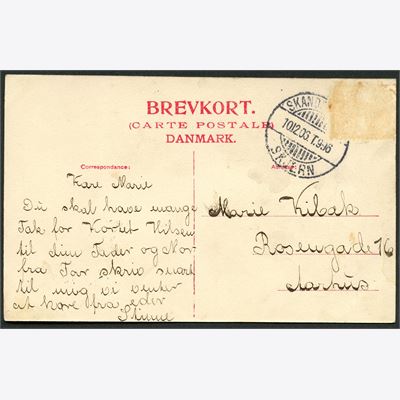 BREVKORT.
(CARTE POSTALE)
DANMARK.
SKAND
10 12.06 T.9-16
SKJERN
Correspondance:
Kære Marie
Du skal have mange
Tak for Kortet Hilsen
til din Fader og Mor
fra Far skriv snart
til mig vi venter
at høre fra eder
Marie Kibæk
Rosengade 16
Aarhus